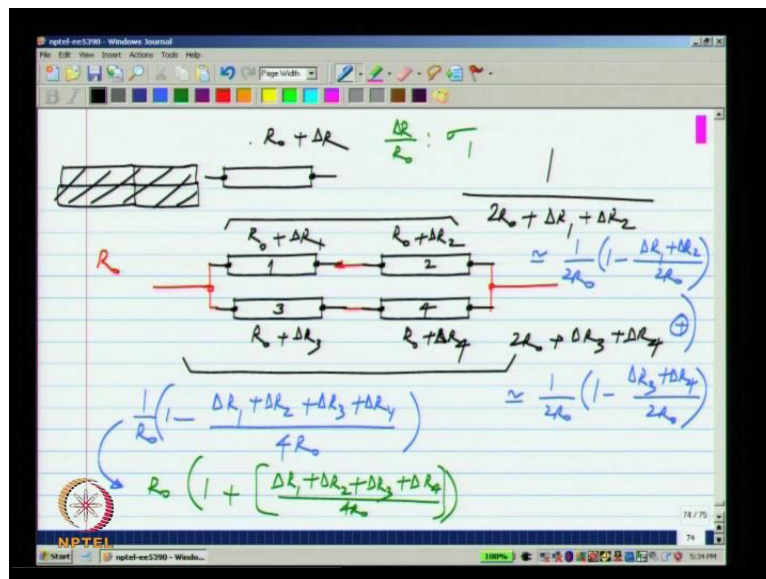 nptel-ee5390 - Windows Journal
File Edit View Insert Actions Tools Help
Page Width
B I
R₀ + ΔR
ΔR/R₀ : σ₁
1/(2R₀ + ΔR₁ + ΔR₂)
R₀ + ΔR₁ R₀ + ΔR₂
≃ 1/2R₀ (1 - (ΔR₁ + ΔR₂)/2R₀)
R₀
1 2
3 4
+
R₀ + ΔR₃ R₀ + ΔR₄
2R₀ + ΔR₃ + ΔR₄
≃ 1/2R₀ (1 - (ΔR₃ + ΔR₄)/2R₀)
1/R₀ (1 - (ΔR₁ + ΔR₂ + ΔR₃ + ΔR₄)/4R₀)
R₀ (1 + [(ΔR₁ + ΔR₂ + ΔR₃ + ΔR₄)/4R₀])
74 / 75
74
NPTEL
Start nptel-ee5390 - Windo... 100% 5:34 PM